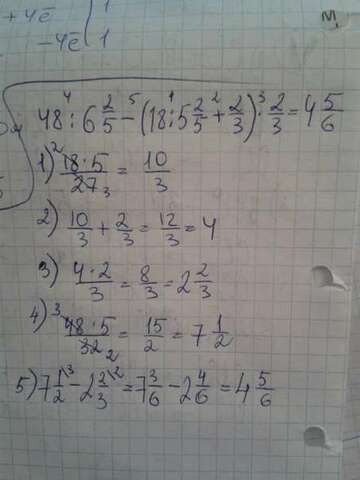 +4ē | 1
-4ē | 1
48 : 6 2/5 - (18 : 5 2/5 + 2/3) · 2/3 = 4 5/6
1) 18·5/27 = 10/3
2) 10/3 + 2/3 = 12/3 = 4
3) 4·2/3 = 8/3 = 2 2/3
4) 48·5/32 = 15/2 = 7 1/2
5) 7 1/2 - 2 2/3 = 7 3/6 - 2 4/6 = 4 5/6